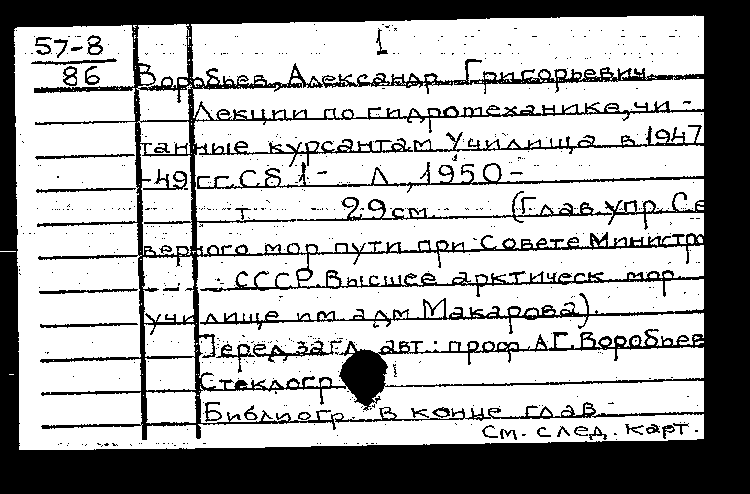 1
57-8
86
Воробьев, Александр Григорьевич.
Лекции по гидротеханике, чи-
танные курсантам Училища в 1947
-49 гг. Сб 1- Л, 1950-
т 29см (Глав. упр. Се
верного мор пути при Совете Министр
СССР. Высшее арктическ мор.
училище им адм Макарова).
Перед загл. авт.: проф А.Г. Воробьев
Стеклогр.
Библиогр. в конце глав.
См. след. карт.